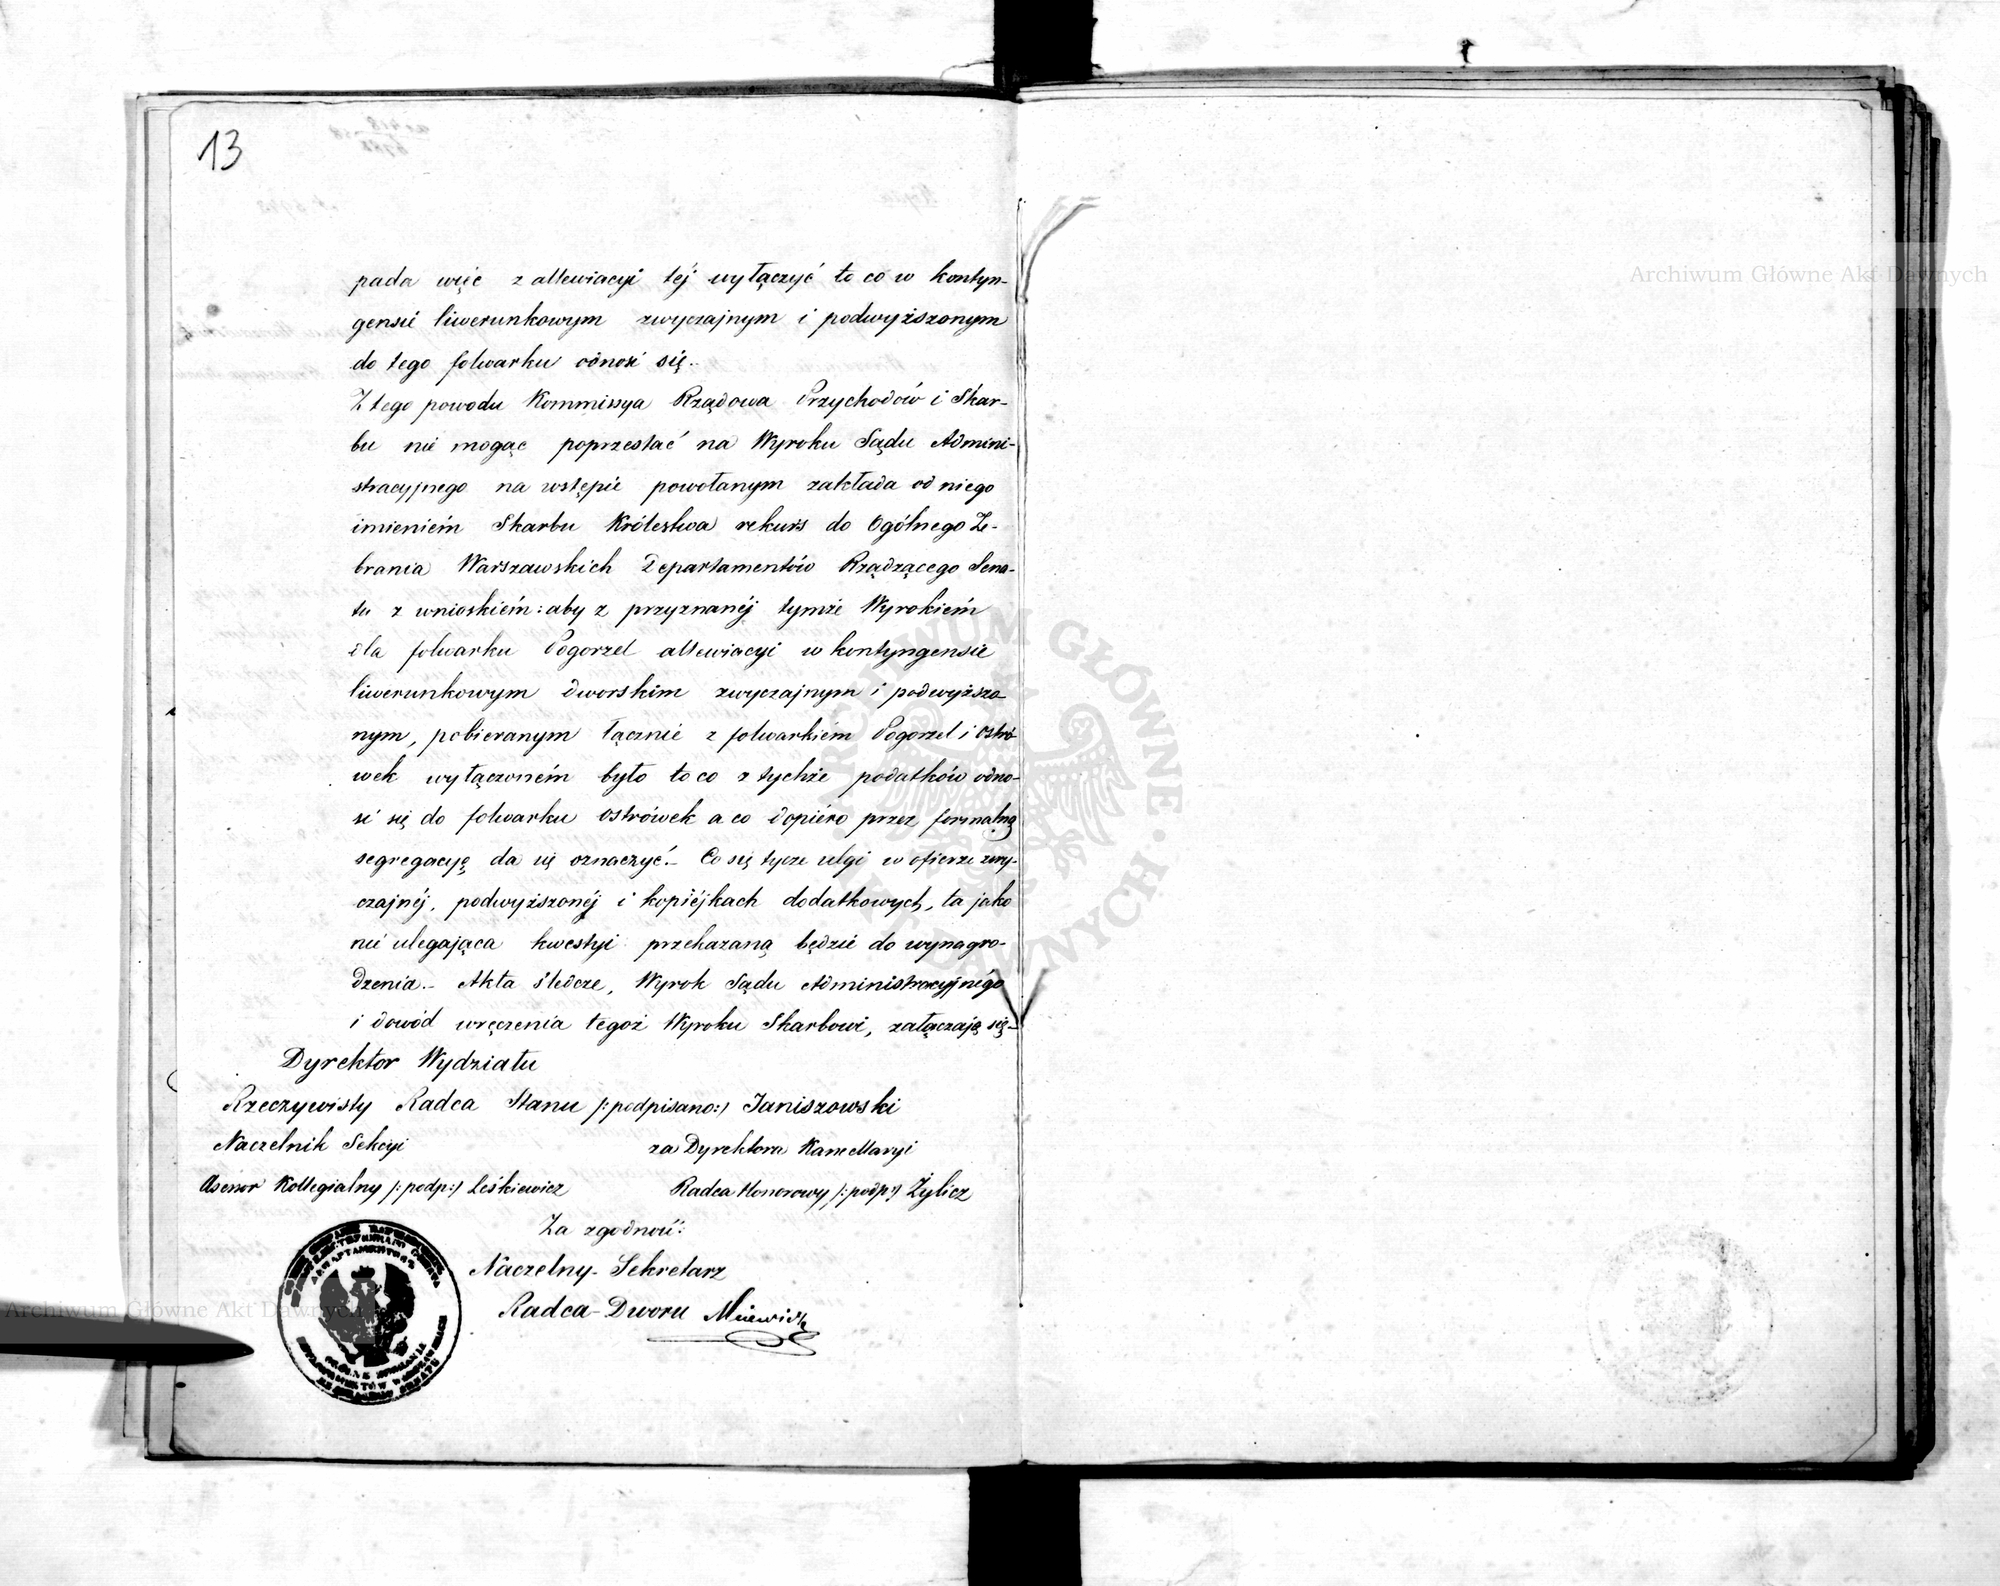 13
pada więc z allewiacyi téj wyłączyć to co w kontyn-
gensie liwerunkowym zwyczajnym i podwyższonym
do tego folwarku odnosi się.-
Z tego powodu Kommissya Rządowa Przychodów i Skar-
bu nie mogąc poprzestać na Wyroku Sądu Admini-
stracyjnego na wstępie powołanym zakłada od niego
imieniem Skarbu Królestwa rekurs do Ogólnego Ze-
brania Warszawskich Departamentów Rządzącego Sena-
tu z wnioskiem: aby z przyznanéj tymże Wyrokiem
dla folwarku Pogorzel allewiacyi w kontyngensie
liwerunkowym dworskim zwyczajnym i podwyższo-
nym, pobieranym łącznie z folwarkiem Pogorzel i Ostró-
wek wyłączoném było to co z tychże podatków odno-
si się do folwarku Ostrówek a co dopiéro przez formalną
segregacyę da się oznaczyć.- Co się tycze ulgi w ofierze zwy-
czajnéj, podwyższonéj i kopiéjkach dodatkowych, ta jako
nie ulegająca kwestyi przekazaną będzie do wynagro-
dzenia.- Akta śledcze, Wyrok Sądu Administracyjnégo
i dowód wręczenia tegoż Wyroku Skarbowi, załączają się.-
Dyrektor Wydziału
Rzeczywisty Radca Stanu /:podpisano:/ Janiszowski
Naczelnik Sekcyi za Dyrektora Kancellaryi
Asessor Kollegialny /:podp:/ Leśkiewicz Radca Honorowy /:podp:/ Żylicz
Za zgodność:
Naczelny-Sekretarz
Radca-Dworu
Archiwum Główne Akt Dawnych
Archiwum Główne Akt Dawnych